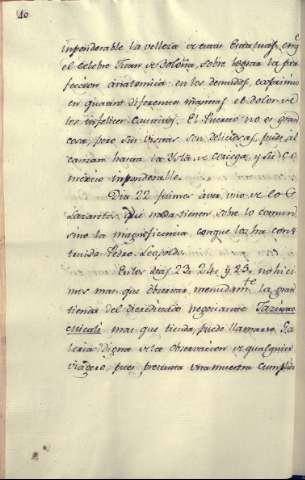 40
imponderable la velleza de cuias Estatuas, en q.
el celebre Juan de Bolonia, sobre lograr la per
feccion anatomica en los desnudos, exprimio
en quatro diferentes maneras el dolor de
los infelices cautivos. El Puerto no es gran
cosa, pero sus vistas son deliciosas, pues al
canzan hasta la Isla de Corcega, y su co
mercio imponderable.
Dia 22 fuimos á ver uno de los
Lazaretos, que nada tienen sobre lo comun
sino la magnificencia con que los ha cons
truido Pedro Leopoldo.
En los dias 23, 24 y 25, no hici
mos mas que observar menudam.te la gran
tienda del acreditado negociante
mas que tienda, puede llamarse Ga
leria digna de la observacion de qualquier
viagero, pues presenta una muestra cumplida